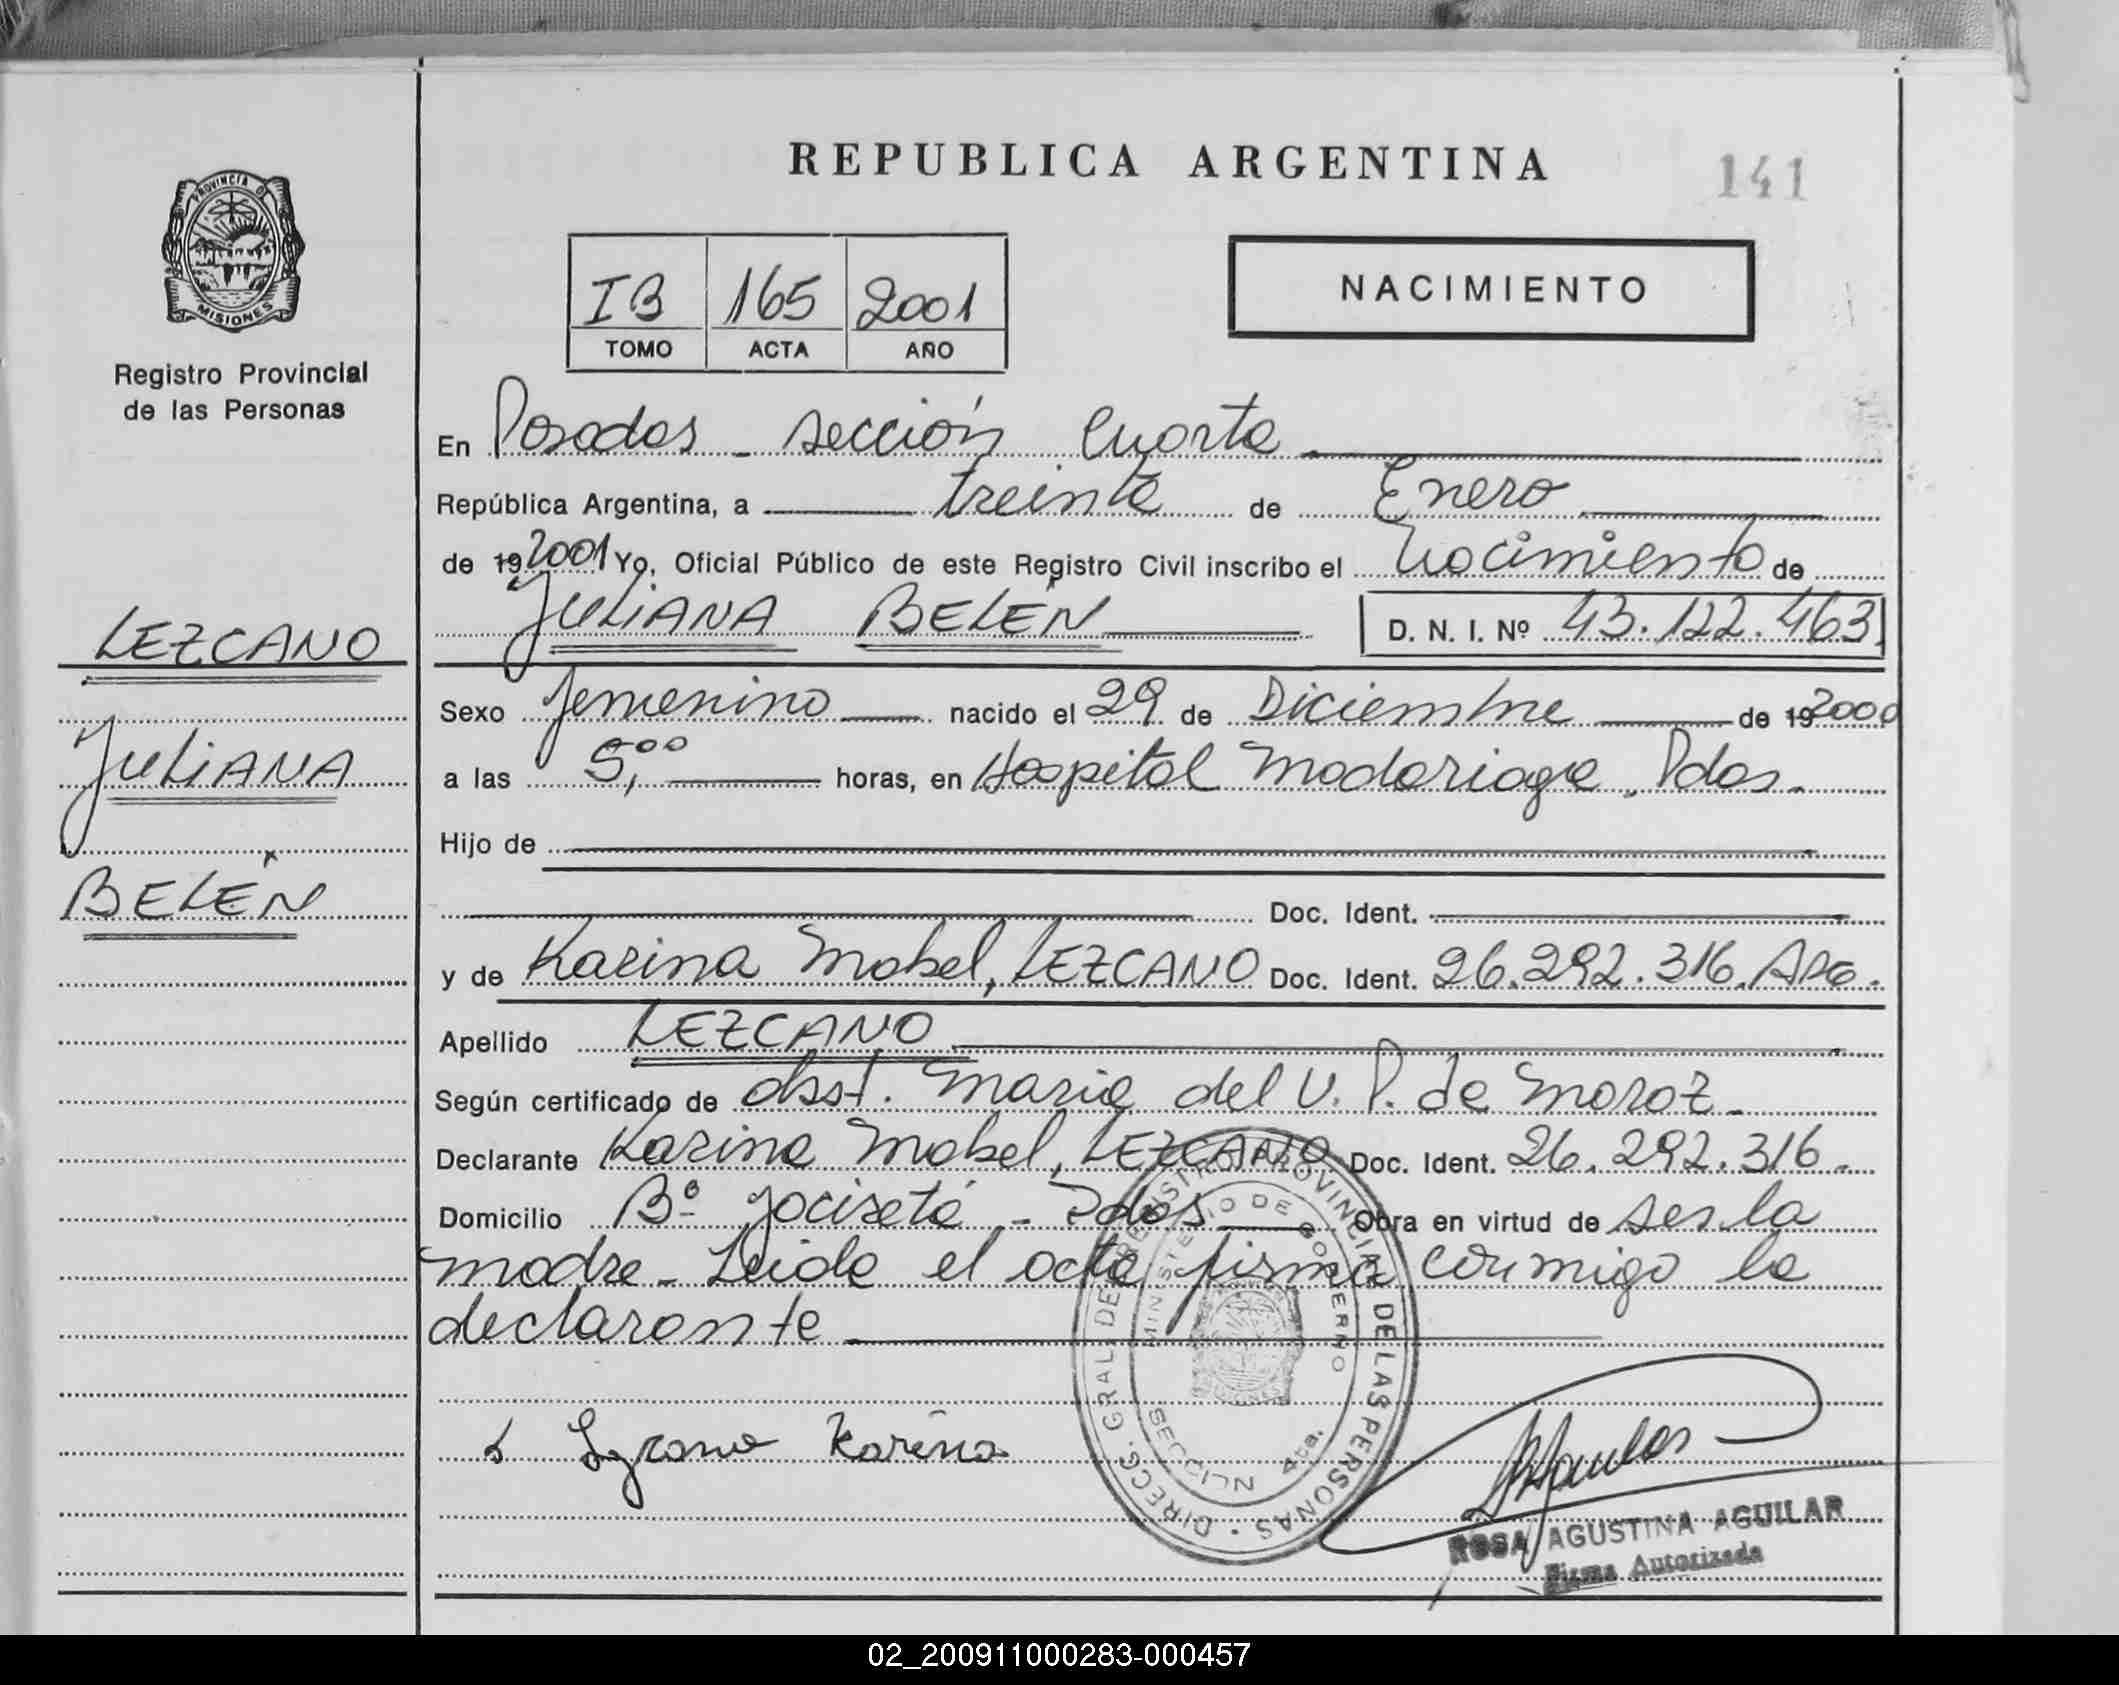 REPUBLICA ARGENTINA
141
PROVINCIA DE MISIONES
Registro Provincial
de las Personas
IB 165 2001
TOMO ACTA AÑO
NACIMIENTO
En Posadas - sección Cuarta
República Argentina, a treinta de Enero
de 19 2001 Yo, Oficial Público de este Registro Civil inscribo el Nacimiento de
JULIANA BELÉN D. N. I. Nº 43.122.463
LEZCANO
JULIANA
BELÉN
Sexo femenino nacido el 29 de Diciembre de 19 2000
a las 5,00 horas, en Hospital Madariaga. Pdas.
Hijo de
Doc. Ident.
y de Karina Mabel, LEZCANO Doc. Ident. 26.292.316. Arg.
Apellido LEZCANO
Según certificado de obst. Maria del V. P. de Moroz
Declarante Karina Mabel, LEZCANO Doc. Ident. 26.292.316.
Domicilio Bº Yacireta - Pdas Obra en virtud de ser la
madre - Leida el acta firma conmigo la
declarante
Karina
DIRECC. GRAL. DE REGISTRO PROVINCIAL DE LAS PERSONAS
MINISTERIO DE GOBIERNO
SECCION 4ta.
ROSA AGUSTINA AGUILAR
Firma Autorizada
02_200911000283-000457